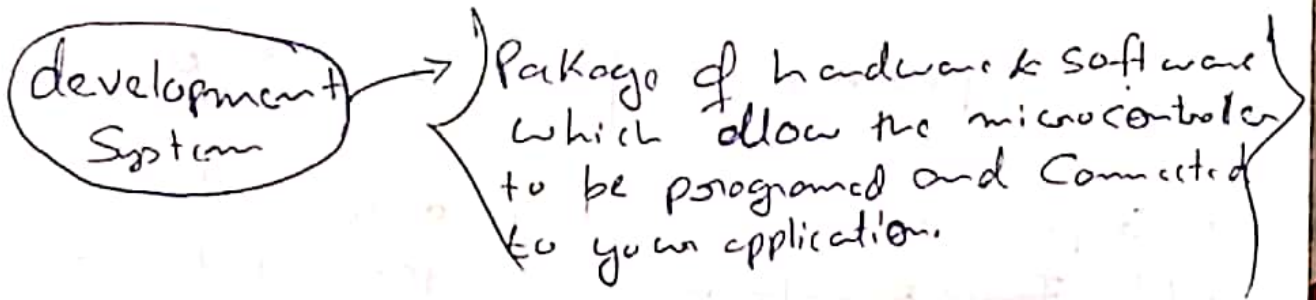 development
System
Pakage of hardware & software
which allow the microcontroler
to be programed and Connected
to your application.